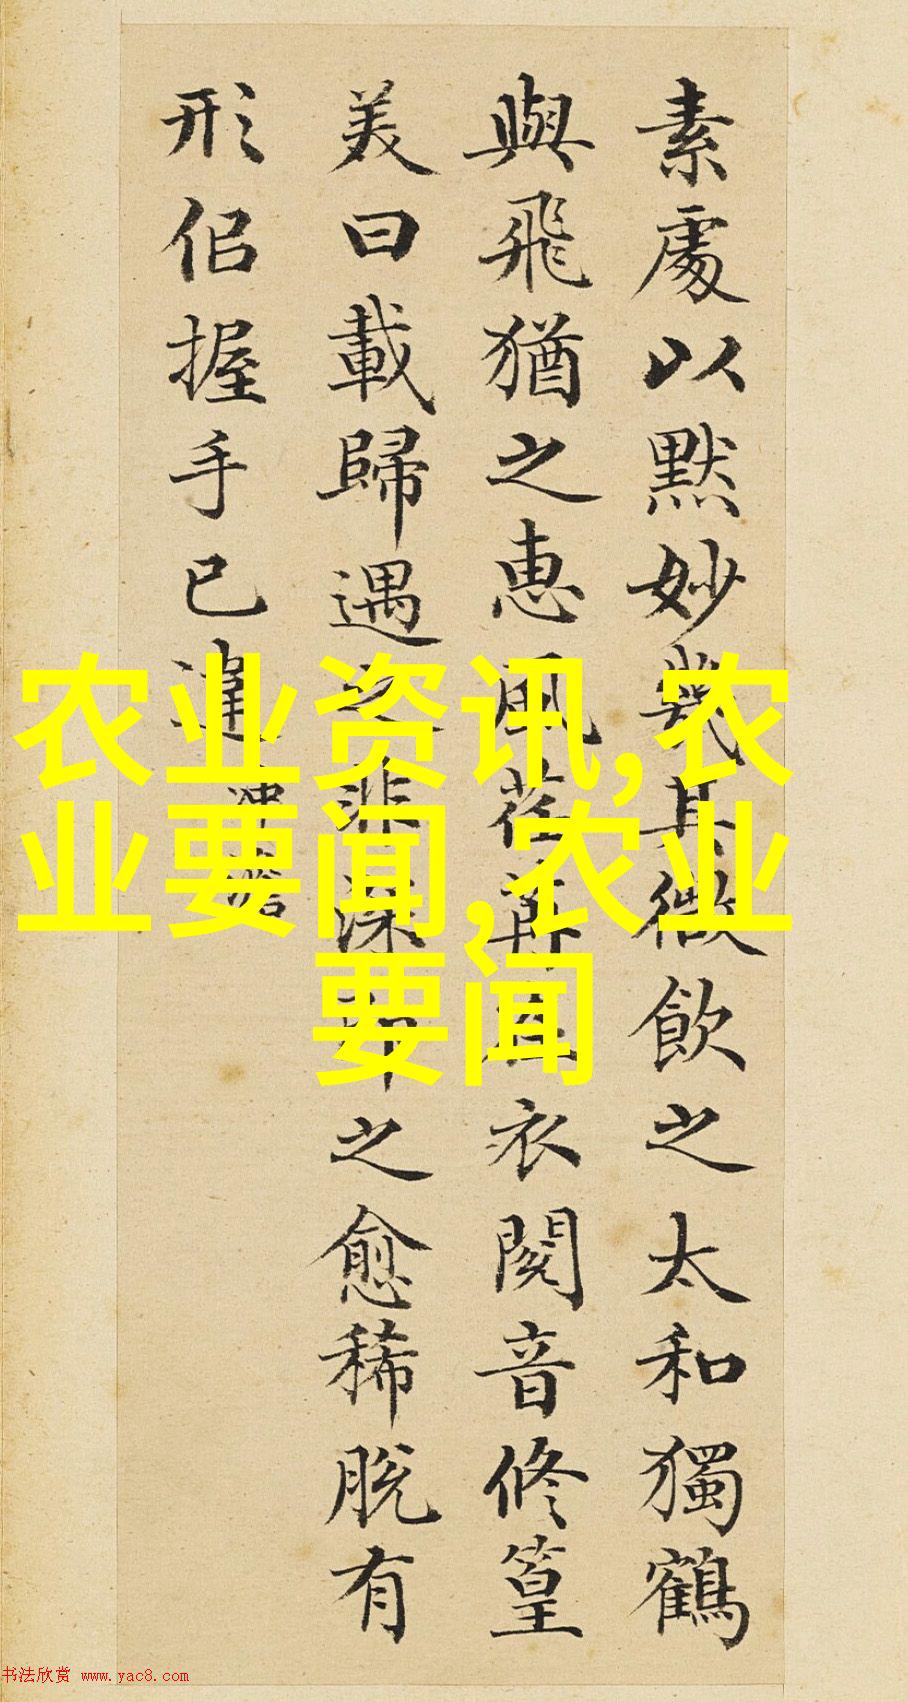 素處以默妙幾其微飲之太和獨鶴
與飛猶之惠風荏苒在衣閱音修篁
美曰載歸遇之非深即之愈稀脫有
形佀握手已違 沖澹
农业资讯,农
业要闻,农业
要闻
书法欣赏 www.yac8.com